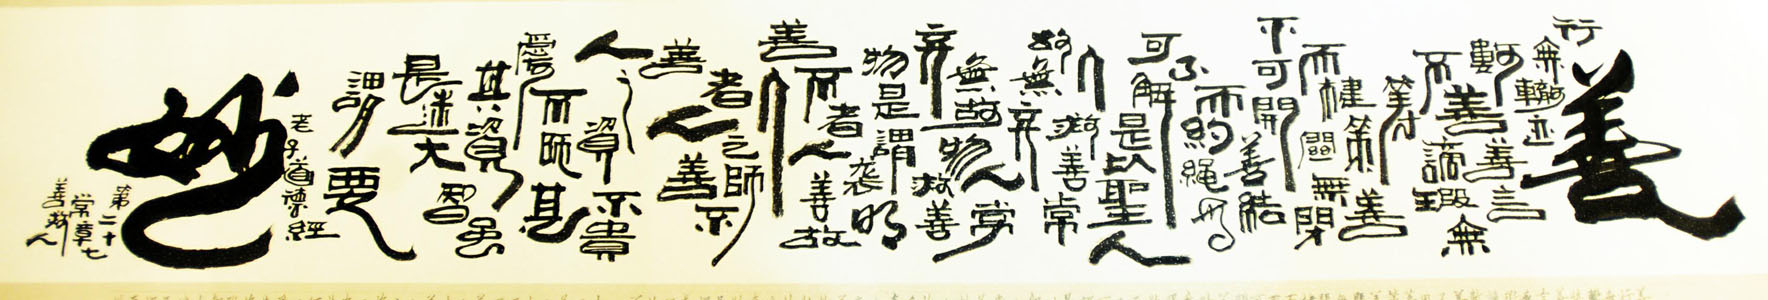 善
行
無轍迹
善言
無瑕讁
善數
不
籌策
善閉無關楗
而不可開
善結
無繩約而不
可解是以聖人
常善救人
故無棄人
常善救物
故無棄
物是謂襲明
故善
人者不
善人
之師不
善人者
善人
之資不貴
其師不
愛其資
雖智
大迷是
謂要
妙
老子道德經
第二十七章
常善救人